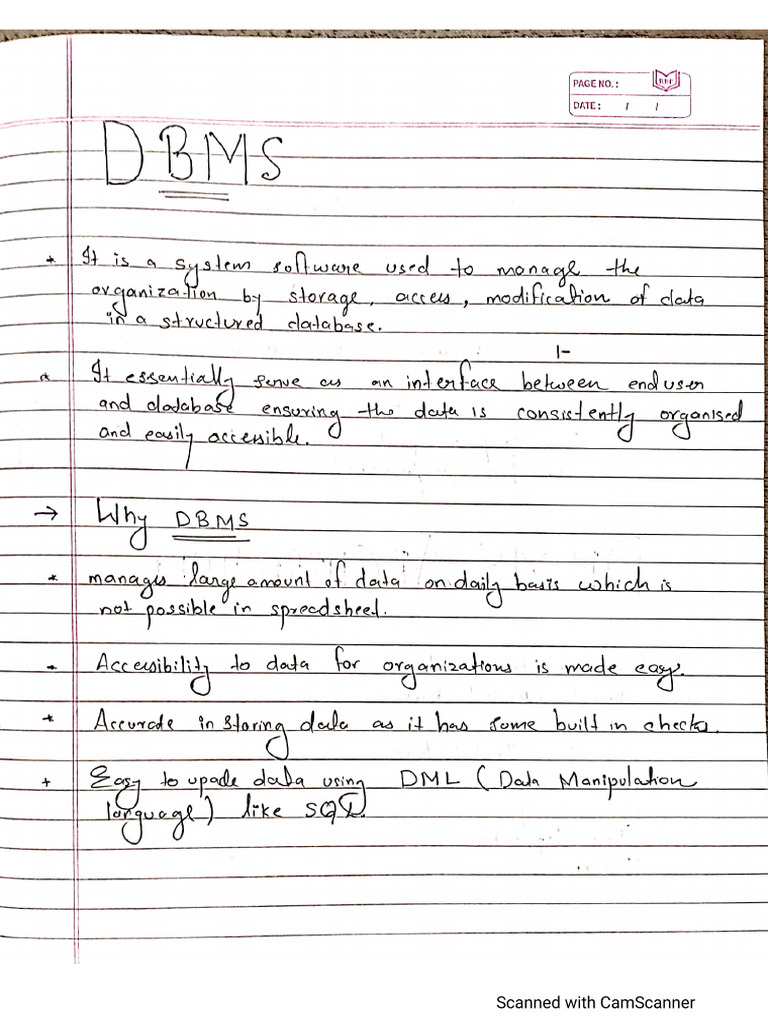 PAGE NO.:
DATE: / /
DBMS
* It is a system software used to manage the
organization by storage, access, modification of data
in a structured database.
1-
* It essentially serve as an interface between end user
and database ensuring the data is consistently organised
and easily accessible.
→ Why DBMS
* manages large amount of data on daily basis which is
not possible in spreadsheet.
* Accessibility to data for organizations is made easy.
* Accurate in storing data as it has some built in checks.
+ Easy to upade data using DML (Data Manipulation
language) like SQL.
Scanned with CamScanner